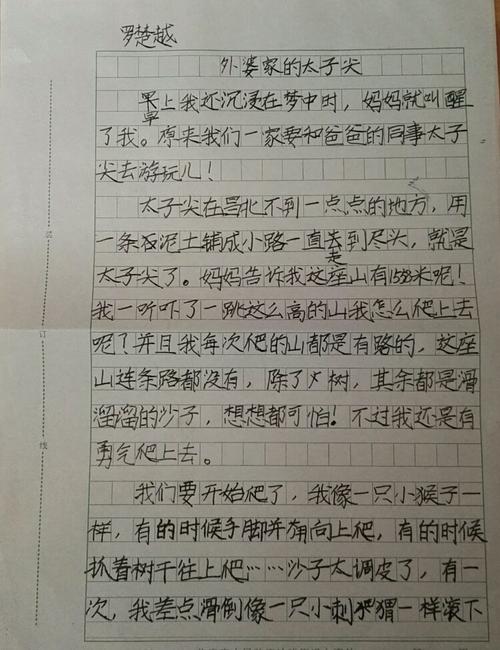 罗楚越
外婆家的太子尖
早上我还沉浸在梦中时，妈妈就叫醒
了我。原来我们一家要和爸爸的同事太子
尖去游玩儿！
太子尖在昌北不到一点点的地方，用
一条水泥土铺成小路一直走到尽头，就是
太子尖了。妈妈告诉我这座山有1558米呢！
我一听吓了一跳这么高的山我怎么爬上去
呢？并且我每次爬的山都是有路的，这座
山连条路都没有，除了树，其余都是滑
溜溜的沙子，想想都可怕！不过我还是有
勇气爬上去。
我们要开始爬了，我像一只小猴子一
样，有的时候手脚并用向上爬，有的时候
抓着树干往上爬……沙子太调皮了，有一
次，我差点滑倒像一只小刺猬一样滚下
装
订
线